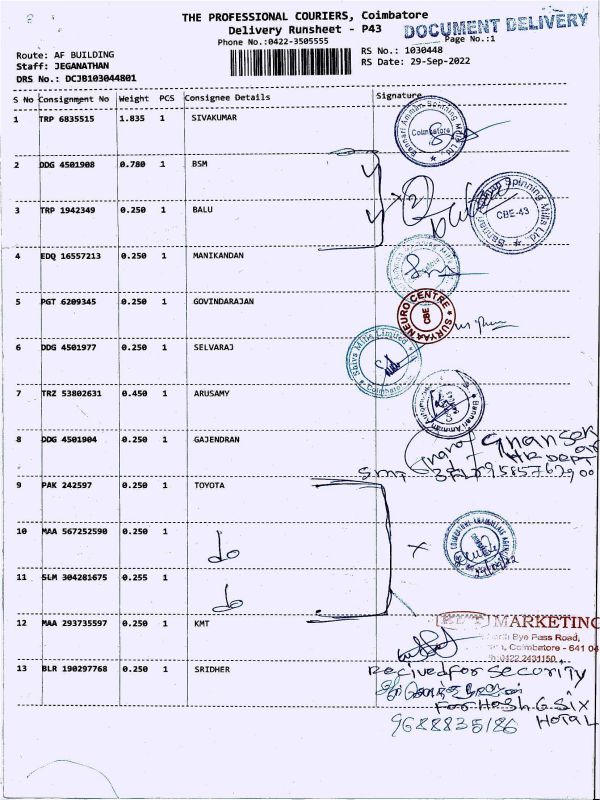 THE PROFESSIONAL COURIERS, Coimbatore
DOCUMENT DELIVERY
Delivery Runsheet - P43
Phone No.:0422-3505555
Page No.:1
Route: AF BUILDING
RS No.: 1030448
Staff: JEGANATHAN
RS Date: 29-Sep-2022
DRS No.: DCJB103044801
S No Consignment No Weight PCS Consignee Details Signature
1 TRP 6835515 1.835 1 SIVAKUMAR
2 DDG 4501908 0.780 1 BSM
3 TRP 1942349 0.250 1 BALU
CBE-43
4 EDQ 16557213 0.250 1 MANIKANDAN
5 PGT 6209345 0.250 1 GOVINDARAJAN
SURYAA NEURO CENTRE
CBE
6 DDG 4501977 0.250 1 SELVARAJ
Shiva Mills Limited
Coimbatore
7 TRZ 53802631 0.450 1 ARUSAMY
8 DDG 4501904 0.250 1 GAJENDRAN
HR DEPT
9 PAK 242597 0.250 1 TOYOTA
10 MAA 567252590 0.250 1 do
11 SLM 304281675 0.255 1 do
12 MAA 293735597 0.250 1 KMT
MARKETING
Bye Pass Road,
Coimbatore - 641 04
0422 2431150
13 BLR 190297768 0.250 1 SRIDHER
Recived for Security
For Hash 6 Six
Hotal
9688835186